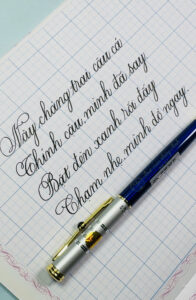 Này chàng trai câu cá
Thính câu mình đã say
Bật đèn xanh rồi đấy
Chạm nhẹ mình đê ngay.